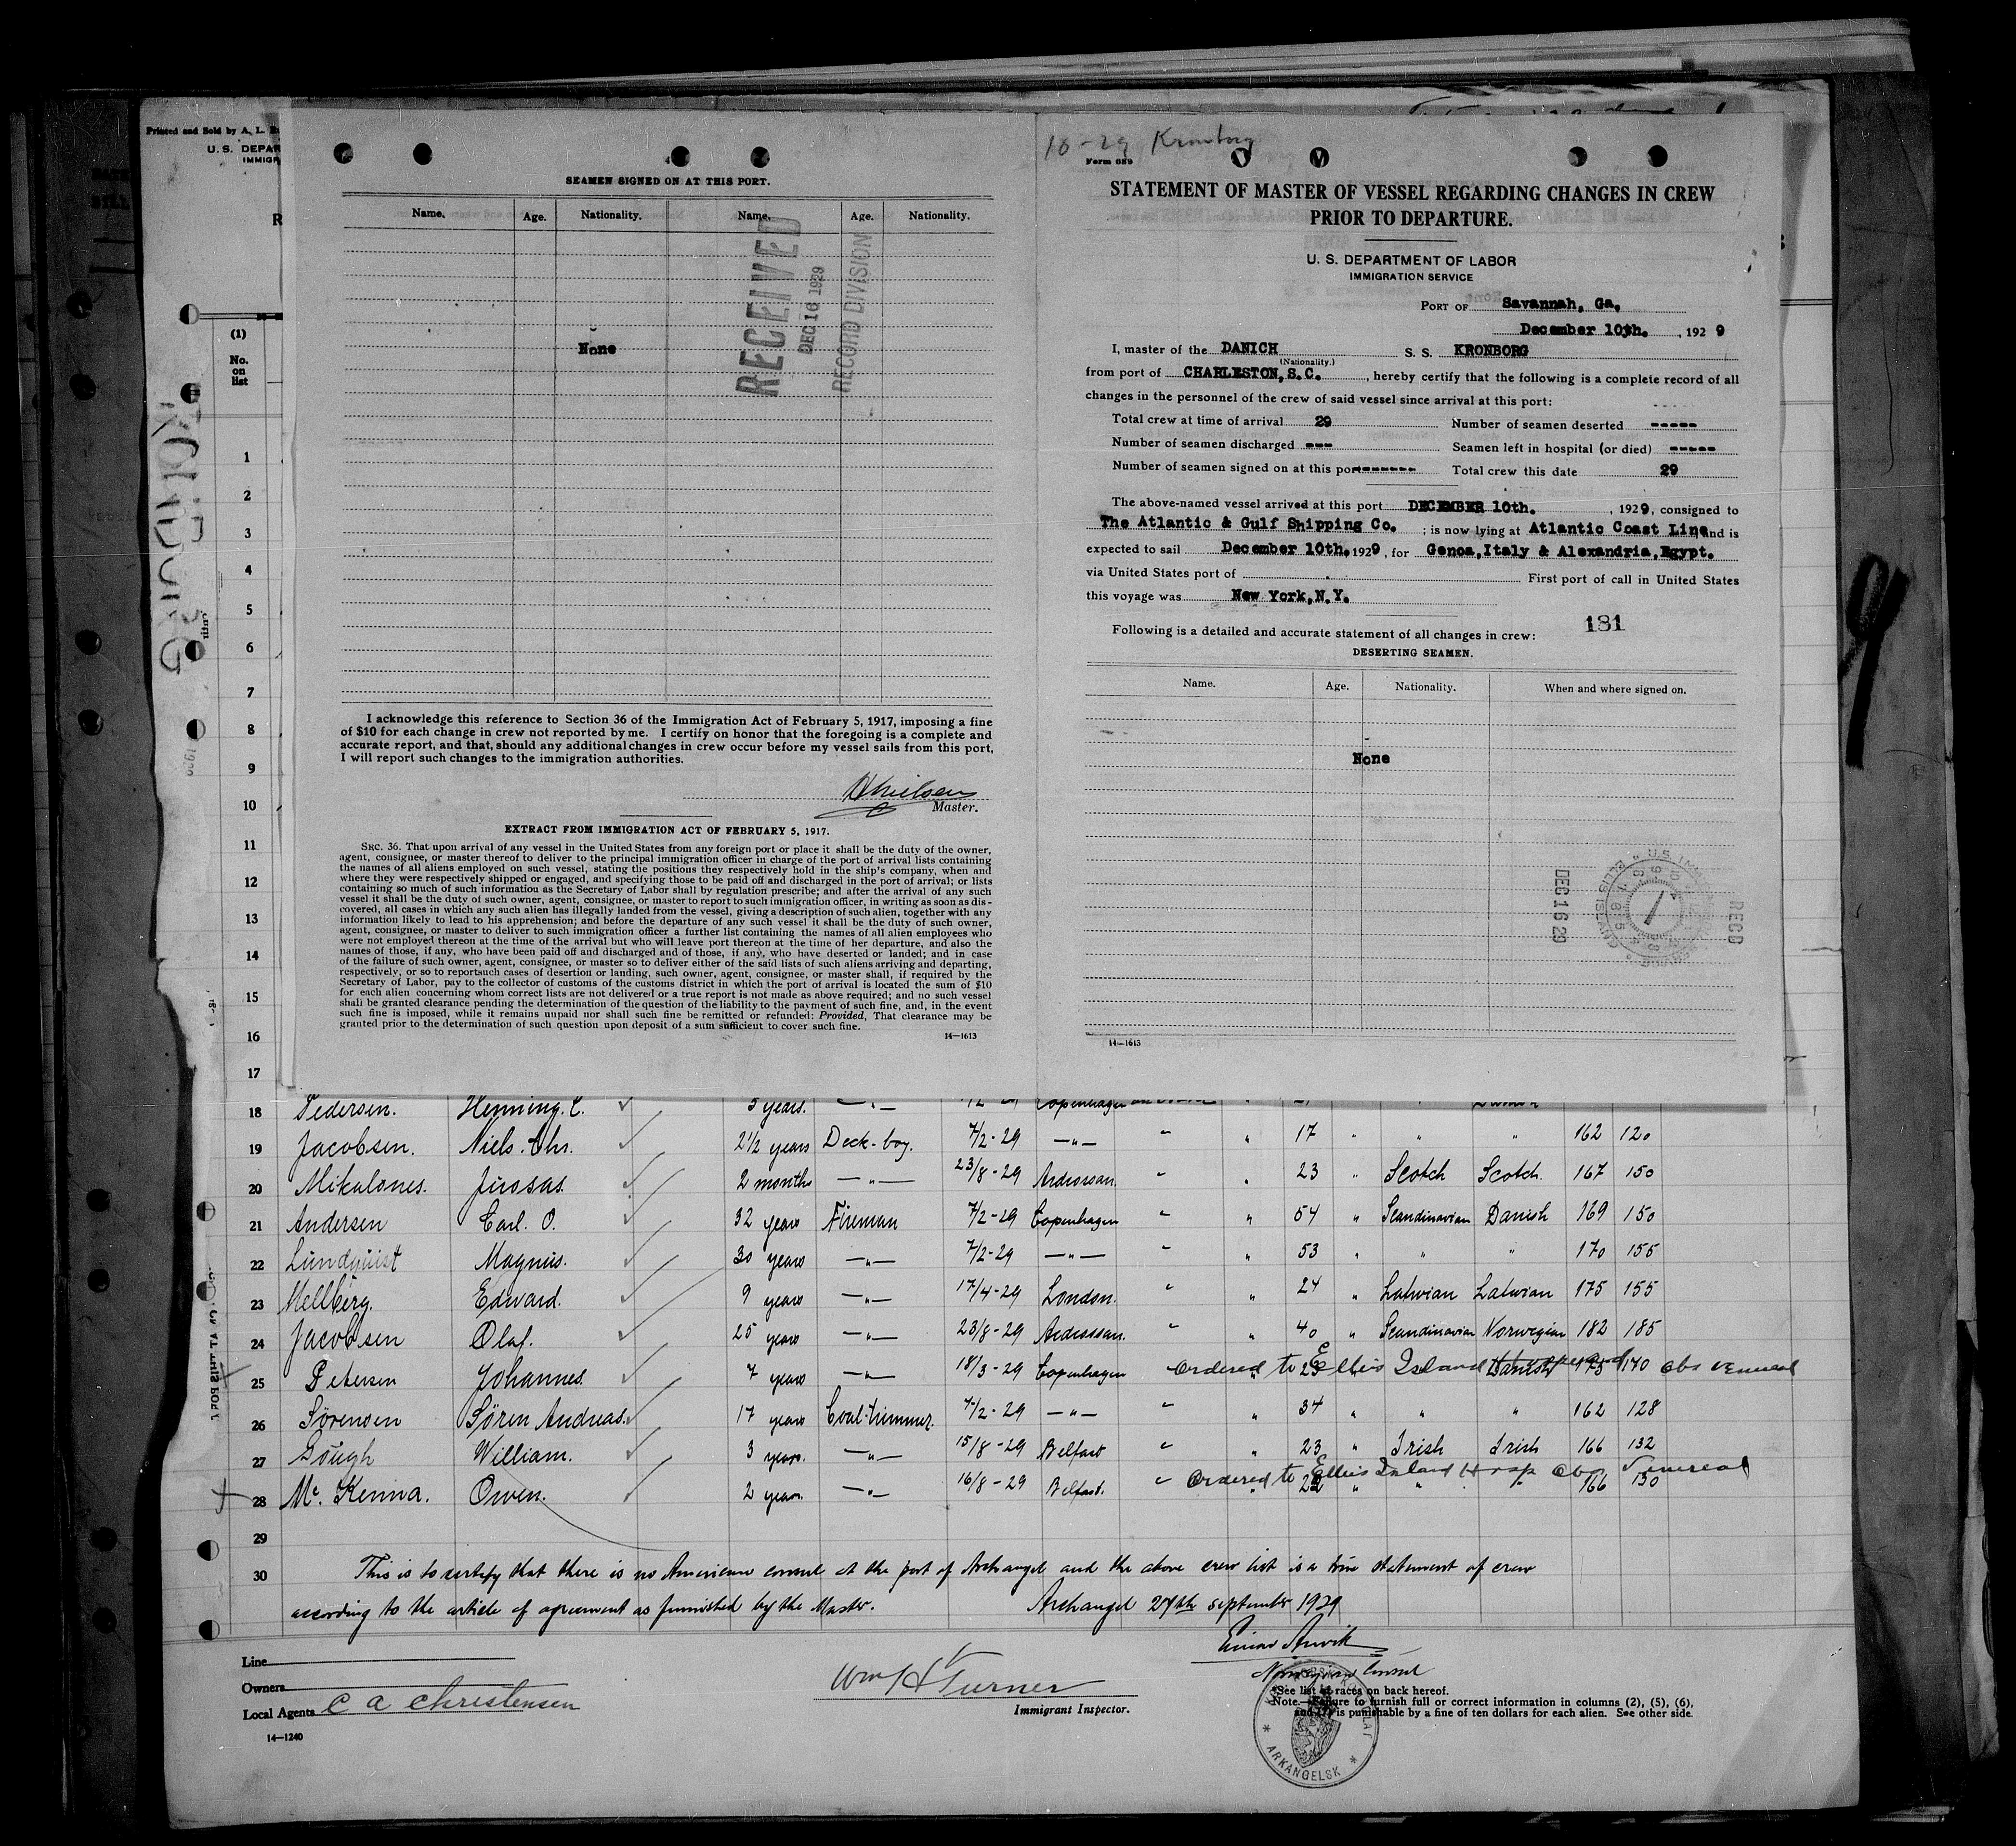 Printed and Sold by A. L.
U. S. DEPAR
IMMIGR
R
(1)
No.
on
list
KRONBORG
1
2
3
4
5
6
7
8
9
10
11
12
13
14
15
16
17
4
SEAMEN SIGNED ON AT THIS PORT.
Name. Age. Nationality. Name. Age. Nationality.
RECEIVED
DEC 16 1929
RECORD DIVISION
None
I acknowledge this reference to Section 36 of the Immigration Act of February 5, 1917, imposing a fine
of $10 for each change in crew not reported by me. I certify on honor that the foregoing is a complete and
accurate report, and that, should any additional changes in crew occur before my vessel sails from this port,
I will report such changes to the immigration authorities.
HNielsen
Master.
EXTRACT FROM IMMIGRATION ACT OF FEBRUARY 5, 1917.
SEC. 36. That upon arrival of any vessel in the United States from any foreign port or place it shall be the duty of the owner,
agent, consignee, or master thereof to deliver to the principal immigration officer in charge of the port of arrival lists containing
the names of all aliens employed on such vessel, stating the positions they respectively hold in the ship's company, when and
where they were respectively shipped or engaged, and specifying those to be paid off and discharged in the port of arrival; or lists
containing so much of such information as the Secretary of Labor shall by regulation prescribe; and after the arrival of any such
vessel it shall be the duty of such owner, agent, consignee, or master to report to such immigration officer, in writing as soon as dis-
covered, all cases in which any such alien has illegally landed from the vessel, giving a description of such alien, together with any
information likely to lead to his apprehension; and before the departure of any such vessel it shall be the duty of such owner,
agent, consignee, or master to deliver to such immigration officer a further list containing the names of all alien employees who
were not employed thereon at the time of the arrival but who will leave port thereon at the time of her departure, and also the
names of those, if any, who have been paid off and discharged and of those, if any, who have deserted or landed; and in case
of the failure of such owner, agent, consignee, or master so to deliver either of the said lists of such aliens arriving and departing,
respectively, or so to reportsuch cases of desertion or landing, such owner, agent, consignee, or master shall, if required by the
Secretary of Labor, pay to the collector of customs of the customs district in which the port of arrival is located the sum of $10
for each alien concerning whom correct lists are not delivered or a true report is not made as above required; and no such vessel
shall be granted clearance pending the determination of the question of the liability to the payment of such fine, and, in the event
such fine is imposed, while it remains unpaid nor shall such fine be remitted or refunded: Provided, That clearance may be
granted prior to the determination of such question upon deposit of a sum sufficient to cover such fine.
14—1613
10-29 Kronborg
Form 689
STATEMENT OF MASTER OF VESSEL REGARDING CHANGES IN CREW
PRIOR TO DEPARTURE.
U. S. DEPARTMENT OF LABOR
IMMIGRATION SERVICE
PORT OF Savannah, Ga.
December 10th. , 1929
I, master of the DANICH S. S. KRONBORG
(Nationality.)
from port of CHARLESTON, S.C. , hereby certify that the following is a complete record of all
changes in the personnel of the crew of said vessel since arrival at this port:
Total crew at time of arrival 29 Number of seamen deserted -----
Number of seamen discharged --- Seamen left in hospital (or died) -----
Number of seamen signed on at this port------- Total crew this date 29
The above-named vessel arrived at this port DECEMBER 10th. , 1929, consigned to
The Atlantic & Gulf Shipping Co. ; is now lying at Atlantic Coast Line and is
expected to sail December 10th. 1929, for Genoa, Italy & Alexandria, Egypt.
via United States port of . First port of call in United States
this voyage was New York, N.Y.
181
Following is a detailed and accurate statement of all changes in crew:
DESERTING SEAMEN.
Name. Age. Nationality. When and where signed on.
None
DEC 16 29
RECD
14—1613
18 Pedersen. Henning. C. 5 years. —"— Copenhagen
19 Jacobsen. Niels. Chr. 2½ years Deck-boy. 7/2-29 —"— " " 17 " " " 162 120
20 Mikalones. Juosas. 2 months —"— 23/8-29 Ardrossan. " " 23 " Scotch Scotch. 167 150
21 Andersen Carl. O. 32 years Fireman 7/2-29 Copenhagen " " 54 " Scandinavian Danish 169 150
22 Lundquist Magnus. 30 years —"— 7/2-29 —"— " " 53 " " " 170 155
23 Mellberg. Edward. 9 years —"— 17/4-29 London. " " 24 " Latvian Latvian 175 155
24 Jacobsen Olaf. 25 years —"— 23/8-29 Ardrossan. " " 40 " Scandinavian Norwegian 182 185
25 Petersen Johannes. 7 years —"— 18/3-29 Copenhagen Ordered to Ellis Island 23 Danish 175 170 obs venereal
26 Sørensen Søren Andreas. 17 years Coal-trimmer. 7/2-29 —"— " " 34 " " " 162 128
27 Gough William. 3 years. —"— 15/8-29 Belfast " " 23 " Irish Irish 166 132
28 Mc. Kenna. Owen. 2 years. —"— 16/8-29 Belfast. " Ordered to Ellis Island Hosp Obs Venereal 22 " " 166 130
29
30 This is to certify that there is no American consul at the port of Archangel and the above crew list is a true statement of crew
according to the article of agreement as furnished by the Master. Archangel 27th september 1929
Norwegian Consul
Line
Owners
Local Agents C A Christensen
14—1240
Wm H Turner
Immigrant Inspector.
*See list of races on back hereof.
Note.—Failure to furnish full or correct information in columns (2), (5), (6),
and (7) is punishable by a fine of ten dollars for each alien. See other side.
ARKANGELSK